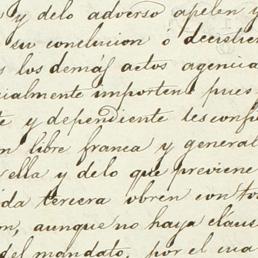 y delo adverso apelen y
su conclucion ó decision
los demás actos agencia
cialmente importen pues
te y dependiente les confie
n libre franca y general
rella y delo que previene
ida tercera obren con to
n, aunque no haya claus
del mandato, por el cua